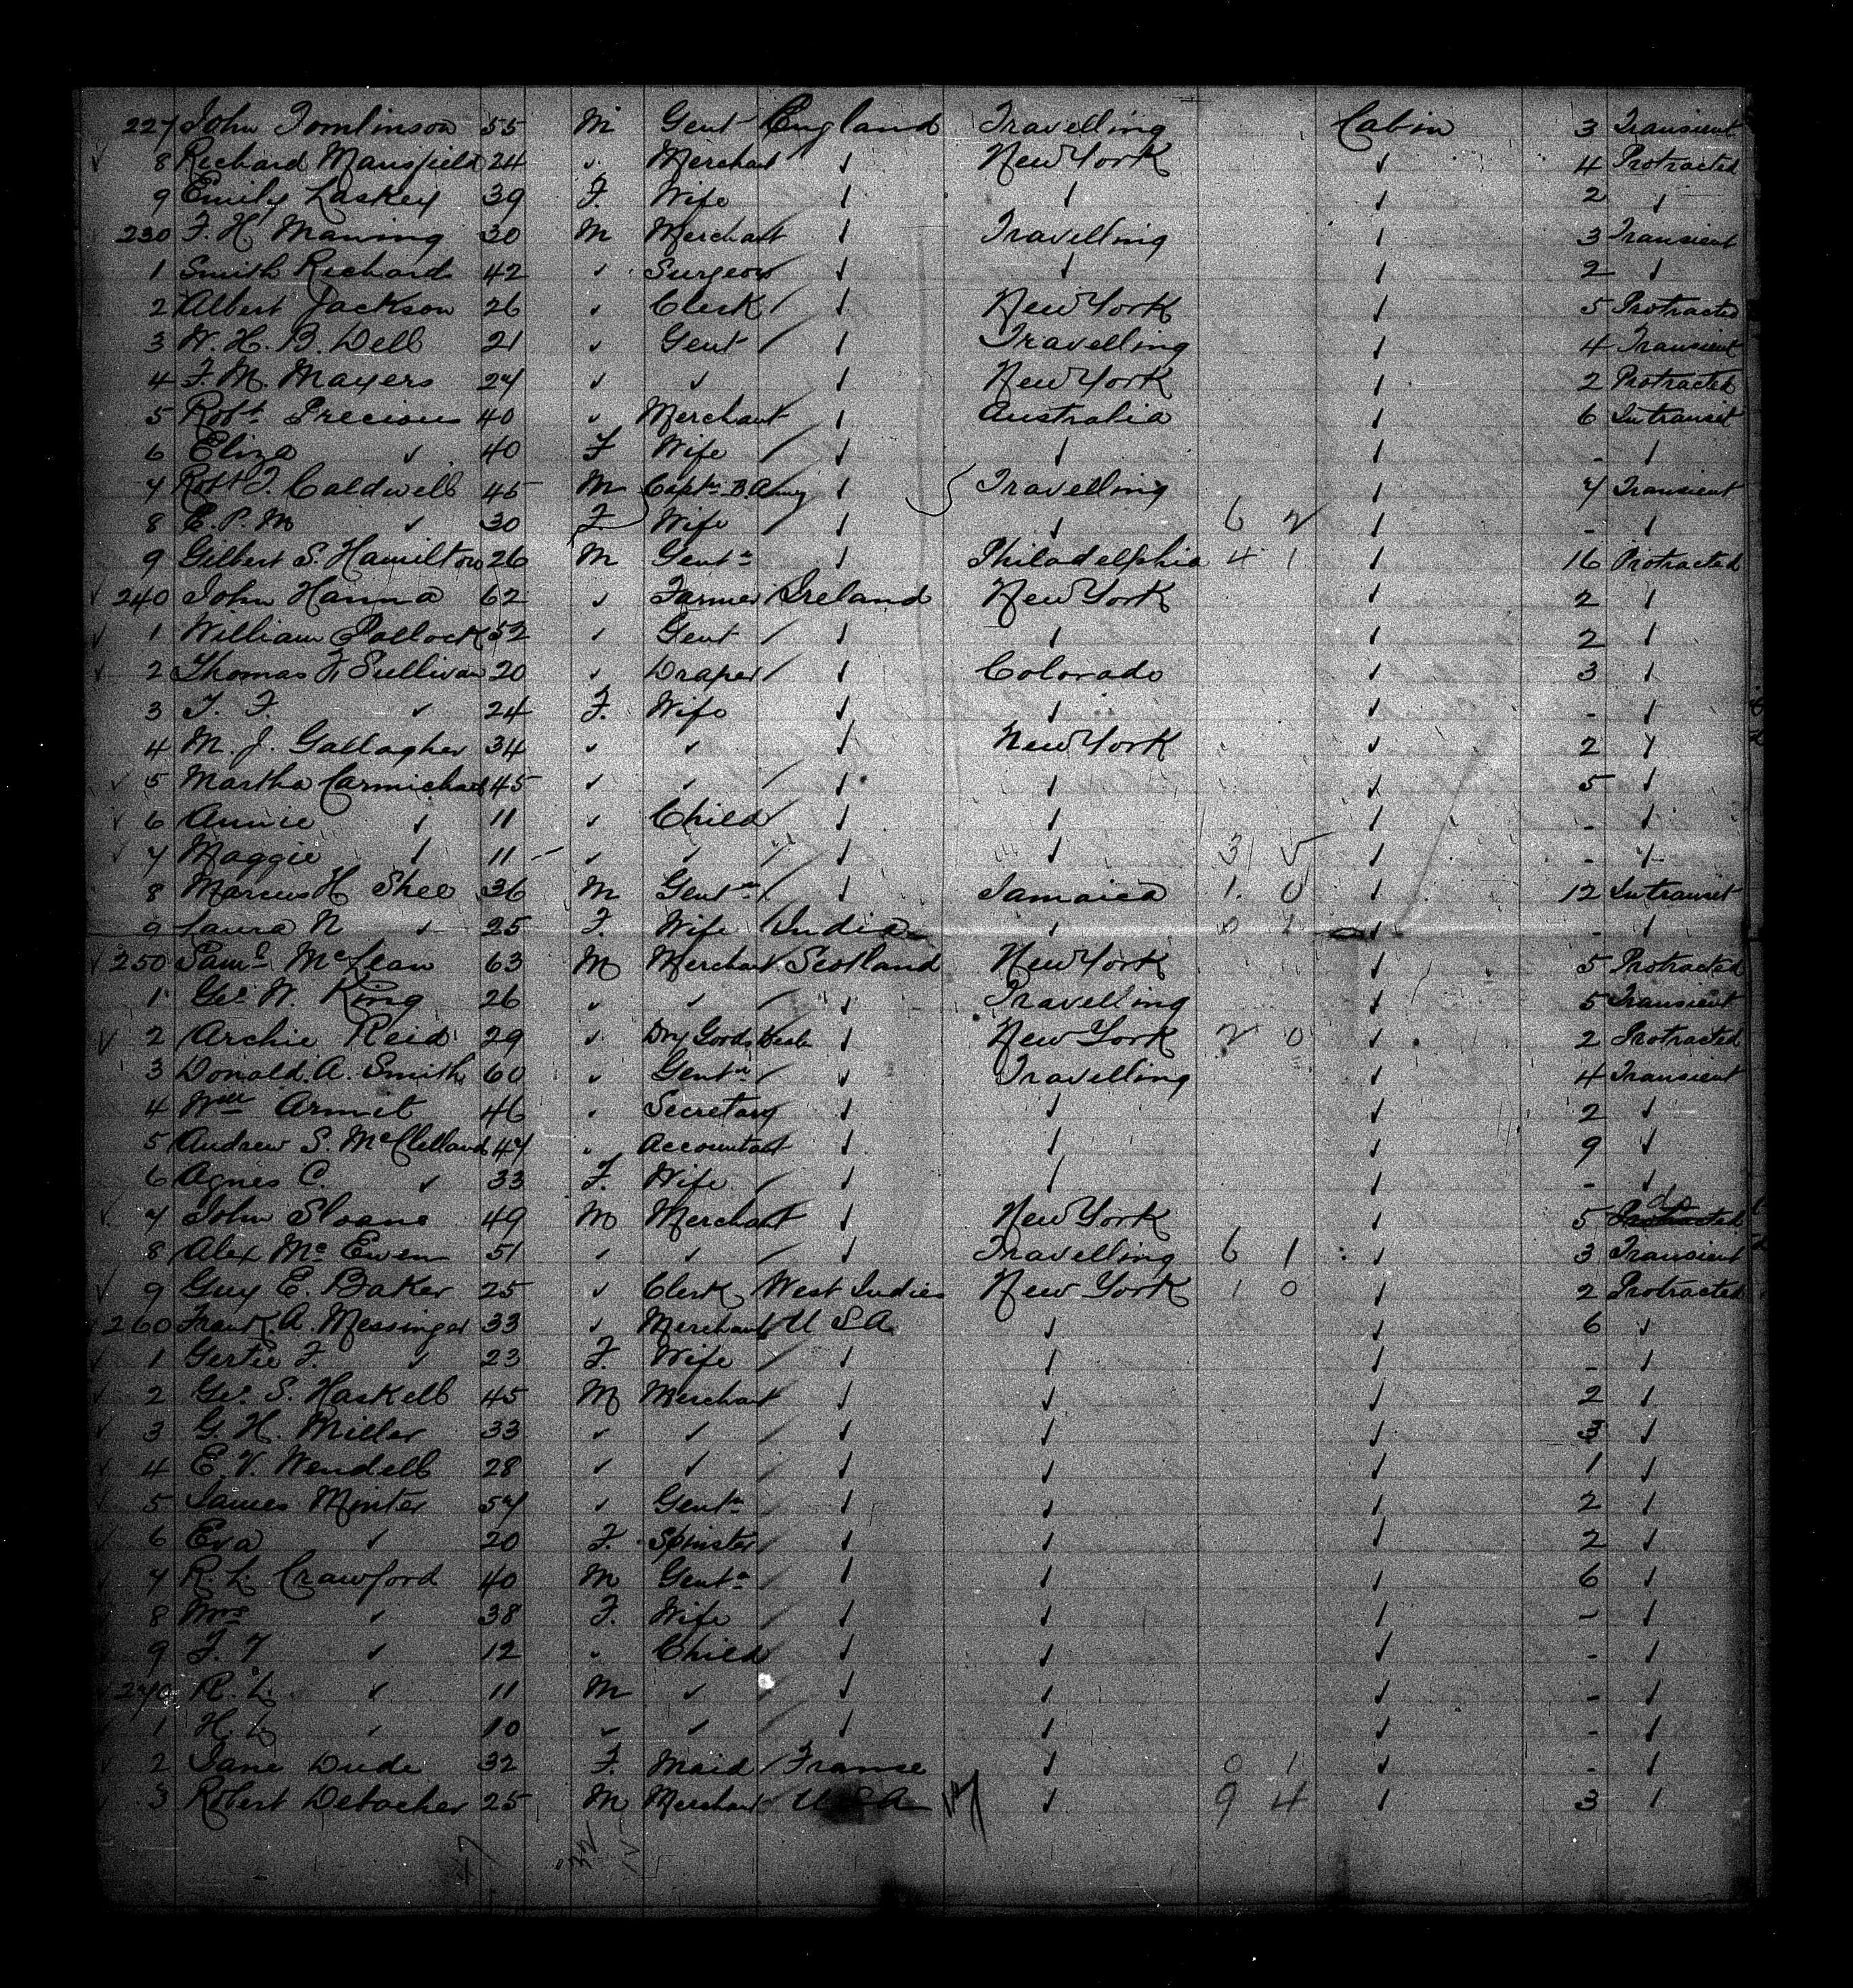 227 John Tomlinson 55 M Gent England Travelling Cabin 3 Transient
✓ 8 Richard Mansfield 24 ✓ Merchant ✓ New York ✓ 4 Protracted
9 Emily Laskey 39 F. Wife ✓ ✓ ✓ 2 ✓
230 F. H. Mawing 30 M Merchant ✓ Travelling ✓ 3 Transient
1 Smith Richard 42 ✓ Surgeon ✓ ✓ ✓ 2 ✓
2 Albert Jackson 26 ✓ Clerk ✓ New York ✓ 5 Protracted
3 W. H. B. Dell 21 ✓ Gent ✓ Travelling ✓ 4 Transient
4 F. M. Mayers 27 ✓ ✓ ✓ New York ✓ 2 Protracted
5 Robt. Precious 40 ✓ Merchant ✓ Australia ✓ 6 Intransit
6 Eliza ✓ 40 F Wife ✓ ✓ ✓ - ✓
7 Robt. J. Caldwell 45 M Captn. B. Army ✓ Travelling ✓ 7 Transient
8 E. P. M ✓ 30 F. Wife ✓ ✓ 6 2 ✓ - ✓
9 Gilbert S. Hamilton 26 M Gentn ✓ Philadelphia 4 1 ✓ 16 Protracted
✓ 240 John Hanna 62 ✓ Farmer Ireland New York ✓ 2 ✓
✓ 1 William Pollock 52 ✓ Gent ✓ ✓ ✓ 2 ✓
✓ 2 Thomas F. Sullivan 20 ✓ Draper ✓ Colorado ✓ 3 ✓
3 T. F. ✓ 24 F. Wife ✓ ✓ ✓ - ✓
4 M. J. Gallagher 34 ✓ ✓ ✓ New York ✓ 2 ✓
✓ 5 Martha Carmichael 45 ✓ ✓ ✓ ✓ ✓ 5 ✓
✓ 6 Annie ✓ 11 ✓ Child ✓ ✓ ✓ - ✓
✓ 7 Maggie ✓ 11 ✓ ✓ ✓ ✓ 3 5 ✓ - ✓
8 Marcus H. Shee 36 M Gentn ✓ Jamaica 1 0 ✓ 12 Intransit
9 Laura N ✓ 25 F. Wife India ✓ 0 1 ✓ - ✓
✓ 250 Saml. McLean 63 M Merchant Scotland New York ✓ 5 Protracted
1 Geo. W. King 26 ✓ ✓ ✓ Travelling ✓ 5 Transient
✓ 2 Archie Reid 29 ✓ Dry Goods Deale ✓ New York 2 0 ✓ 2 Protracted
3 Donald A. Smith 60 ✓ Gentn ✓ Travelling ✓ 4 Transient
4 Wm Armit 46 ✓ Secretary ✓ ✓ ✓ 2 ✓
5 Andrew S. McClelland 47 ✓ Accountant ✓ ✓ ✓ 9 ✓
6 Agnes C. ✓ 33 F. Wife ✓ ✓ ✓ - ✓
✓ 7 John Sloane 49 M Merchant ✓ New York ✓ 5 Protracted do
8 Alex McEwen 51 ✓ ✓ ✓ Travelling 6 1 ✓ 3 Transient
✓ 9 Guy E. Baker 25 ✓ Clerk West Indies New York 1 0 ✓ 2 Protracted
✓ 260 Frank A. Messinger 33 ✓ Merchant U S A ✓ ✓ 6 ✓
✓ 1 Gertie F. ✓ 23 F. Wife ✓ ✓ ✓ - ✓
✓ 2 Geo. S. Haskell 45 M Merchant ✓ ✓ ✓ 2 ✓
✓ 3 G. H. Miller 33 ✓ ✓ ✓ ✓ ✓ 3 ✓
✓ 4 E. V. Wendell 28 ✓ ✓ ✓ ✓ ✓ 1 ✓
✓ 5 James Minter 57 ✓ Gentn ✓ ✓ ✓ 2 ✓
✓ 6 Eva ✓ 20 F. Spinster ✓ ✓ ✓ 2 ✓
✓ 7 R. L. Crawford 40 M Gentn ✓ ✓ ✓ 6 ✓
✓ 8 Mrs ✓ 38 F. Wife ✓ ✓ ✓ - ✓
✓ 9 F. T ✓ 12 ✓ Child ✓ ✓ ✓ - ✓
✓ 270 R. L. ✓ 11 M ✓ ✓ ✓ ✓ - ✓
✓ 1 H. L ✓ 10 ✓ ✓ ✓ ✓ ✓ - ✓
✓ 2 Jane Dude 32 F. Maid France ✓ 0 1 ✓ - ✓
✓ 3 Robert Debacher 25 M Merchant U S A ✓ 9 4 ✓ 3 ✓
47 32 15